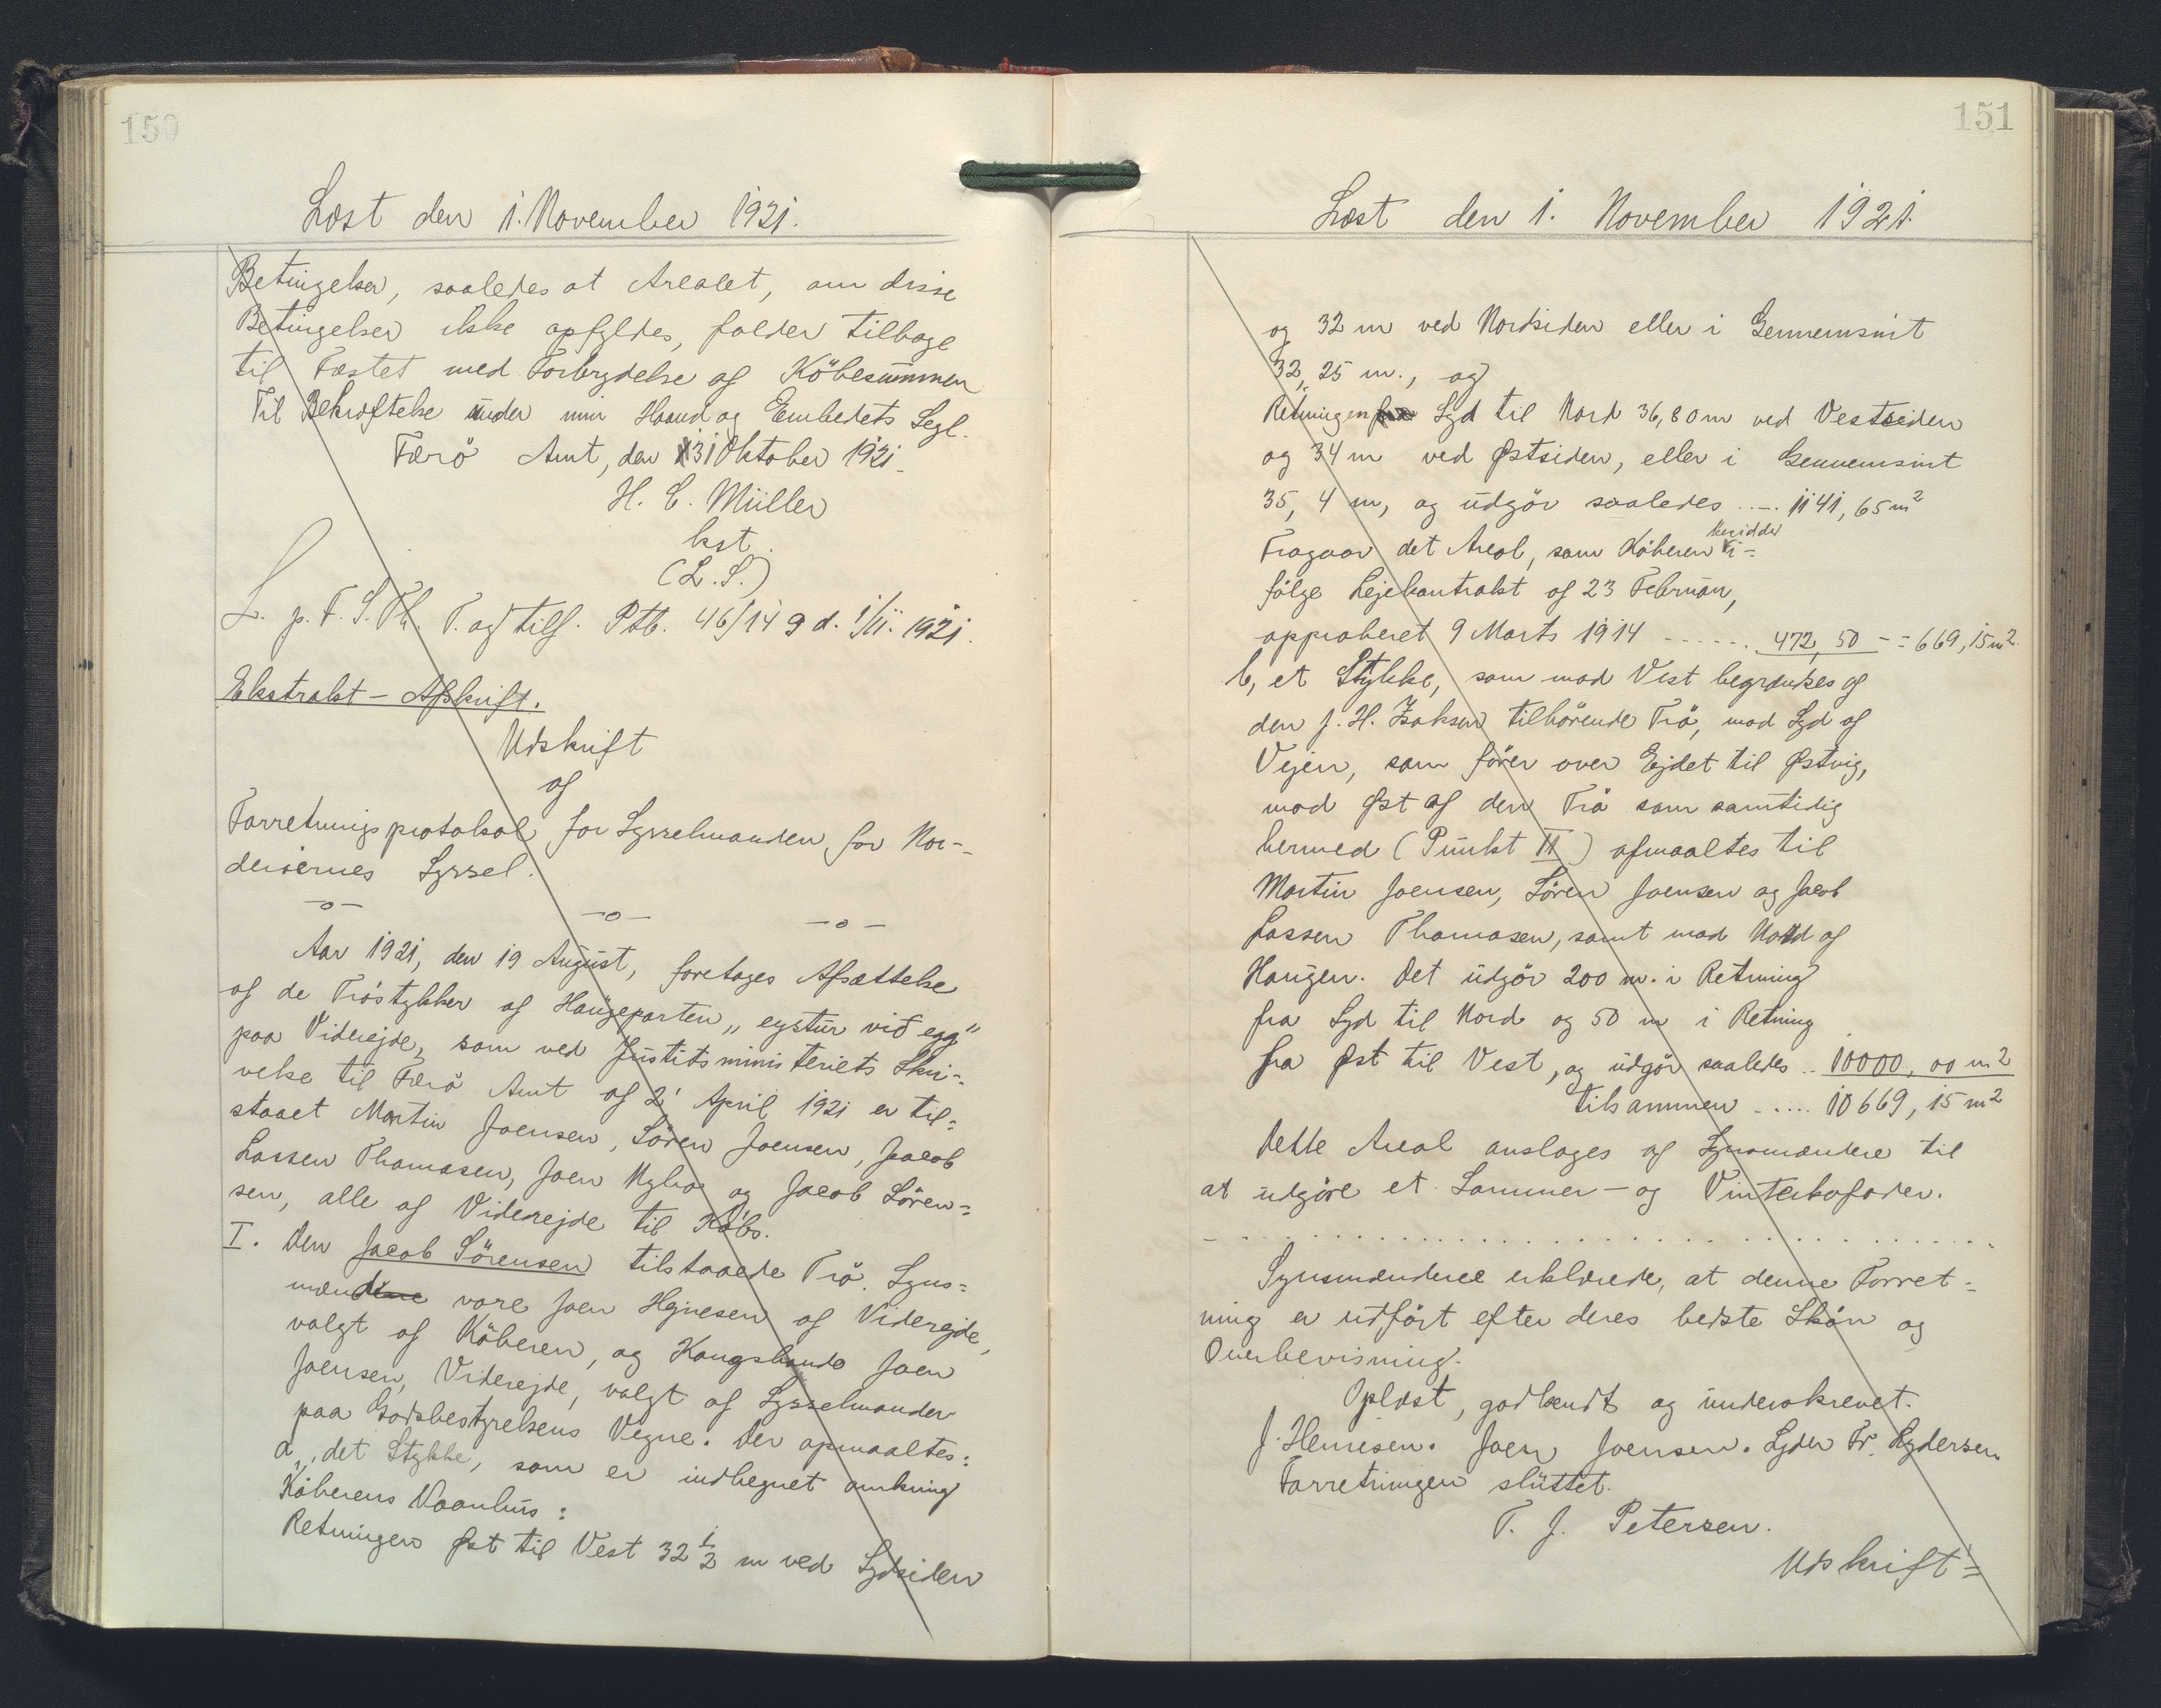 150
Læst den 1. November 1921.
Betingelser, saaledes at Arealet, om disse
Betingelser ikke opfyldes, falder tilbage
til Fæstet med Forbrydelse af Købesummen
Til Bekræftelse under min Haand og Embedets Segl.
Færö Amt, den 31 Oktober 1921.
H. C. Müller
kst.
(L. S.)
L. p. F. S. Th. T. og tilf. Ptb. 46/149 d. 1/11. 1921.
Ekstrakt - Afskrift.
Udskrift
af
Forretningsprotokol for Sysselmanden for Nor-
derøernes Syssel.
-o- -o- -o-
Aar 1921, den 19 August, foretages Afsættelse
af de Tröstykker af Haugeparten „eystur við egg"
paa Viderejde, som ved Justitsministeriets Skri-
velse til Færö Amt af 2' April 1921 er til=
staaet Martin Joensen, Sören Joensen, Jacob
Lassen Thomasen, Joen Myhre og Jacob Sören=
sen, alle af Viderejde til Köbs.
I. Den Jacob Sörensen tilstaaede Trö. Syns=
mændene vare Joen Hejnesen af Viderejde,
valgt af Köberen, og Kongsbonde Joen
Joensen, Viderejde, valgt af Sysselmanden
paa Godsbestyrelsens Vegne. Der opmaaltes:
a, det Stykke, som er indhegnet omkring
Köberens Vaanhus:
Retningen Øst til Vest 32 1/2 m ved Sydsiden
151
Læst den 1. November 1921.
og 32 m ved Nordsiden eller i Gennemsnit
32,25 m., og
Retningen fra Syd til Nord 36,80 m ved Vestsiden
og 34 m ved Østsiden, eller i Gennemsnit
35,4 m, og udgör saaledes ..-. 1141,65 m²
Fragaar det Areal, som Köberen besidder i=
fölge Lejekontrakt af 23 Februar,
approberet 9 Marts 1914 ------. 472,50 - = 669,15 m²
b, et Stykke, som mod Vest begrændses af
den J. H. Isaksen tilhörende Trö, mod Syd af
Vejen, som förer over Ejdet til Østvig,
mod Øst af den Trö som samtidig
hermed (Punkt II) afmaaltes til
Martin Joensen, Sören Joensen og Jacob
Lassen Thomasen, samt mod Nord af
Haugen. Det udgör 200 m. i Retning
fra Syd til Nord og 50 m i Retning
fra Øst til Vest, og udgör saaledes .. 10000,00 m²
tilsammen ..... 10669,15 m²
Dette Areal anslages af Synsmændene til
at udgöre et Sommer- og Vinterkofoder.
- . . . . . . . . . . . . . . . . . . . . . . . . . . .
Synsmændene erklærede, at denne Forret=
ning er udfört efter deres bedste Skön og
Overbevisning.
Oplæst, godkendt og underskrevet.
J. Henesen. Joen Joensen. Lyder Fr. Lydersen
Forretningen sluttet.
T. J. Petersen.
Udskrift=